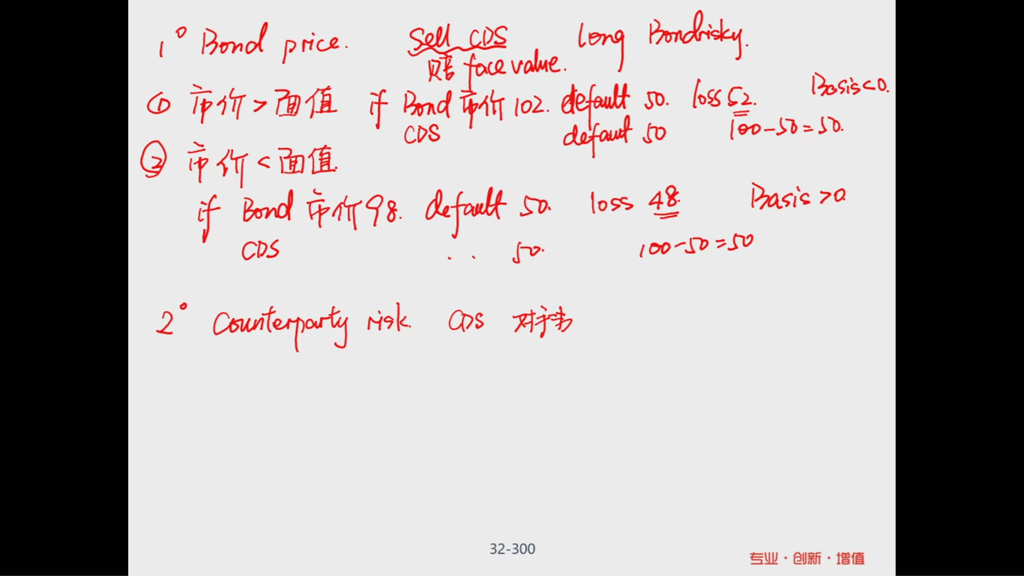 1° Bond price. Sell CDS long Bond risky.
赔 face value.
① 市价 > 面值 if Bond 市价 102. default 50. loss 52. Basis<0.
CDS default 50 100-50=50.
② 市价 < 面值
if Bond 市价 98. default 50. loss 48. Basis>0
CDS .. 50. 100-50=50
2° Counterparty risk. CDS 对手
32-300
专业·创新·增值